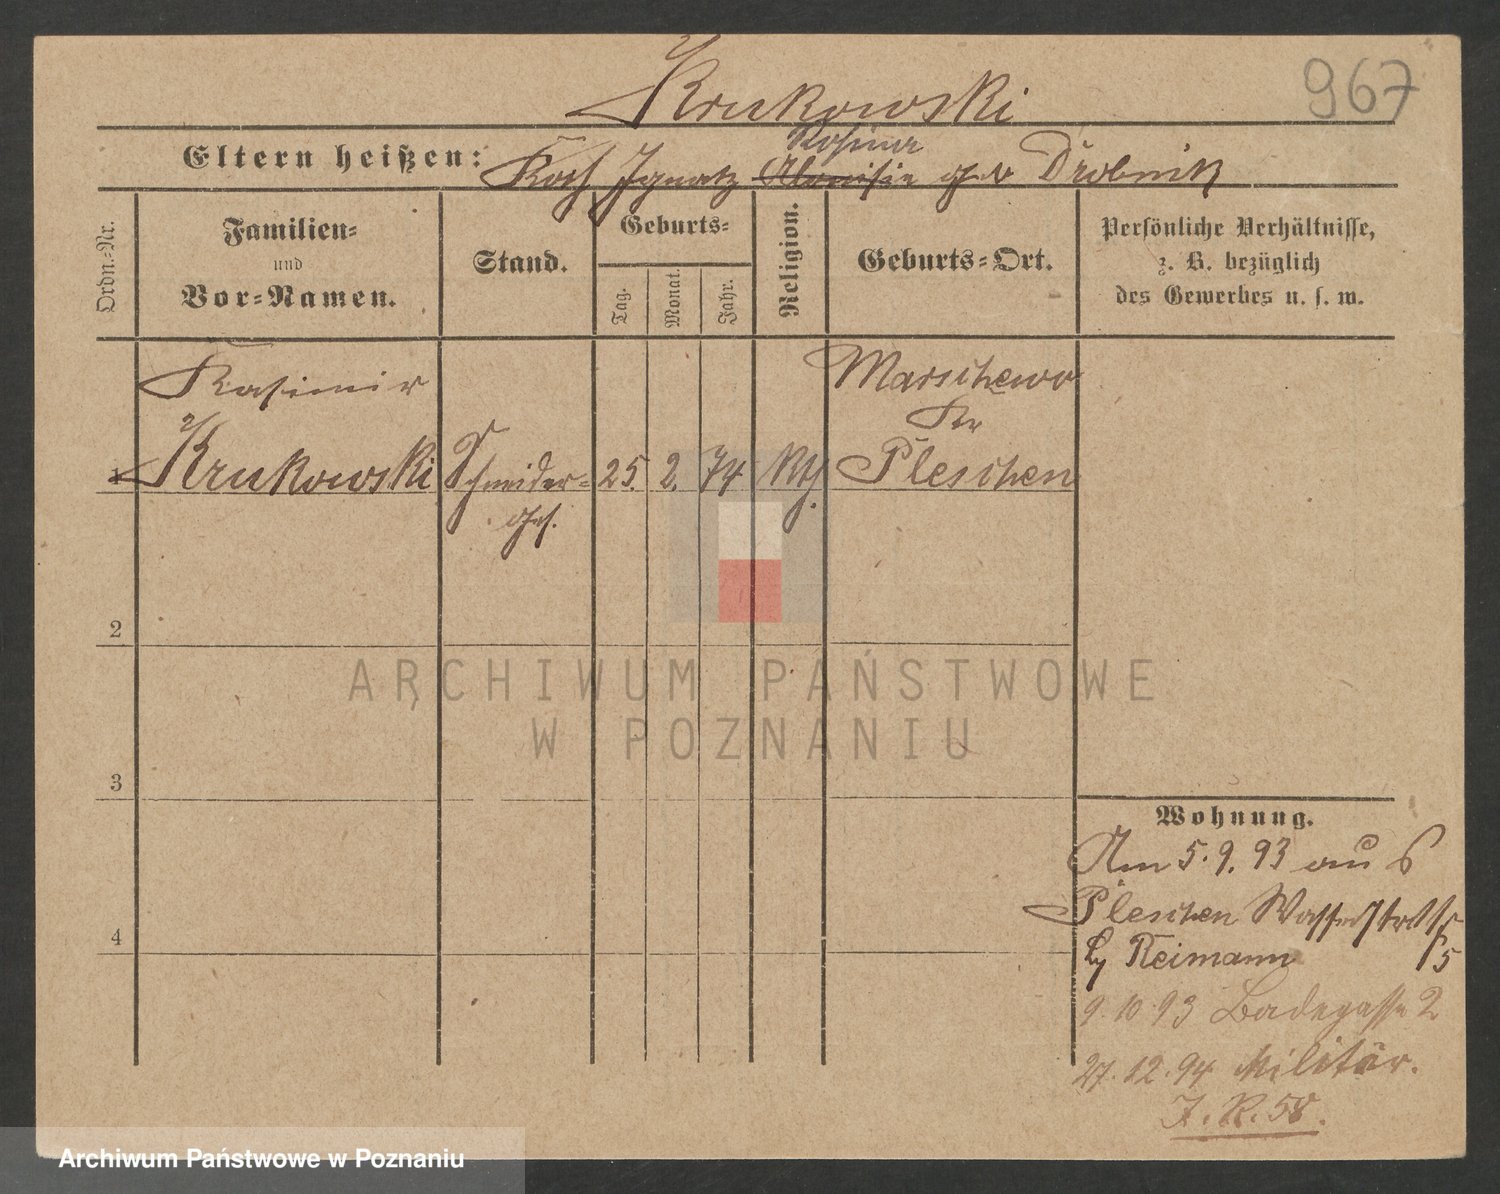 967
Krukowski
Rosina
Eltern heißen: Kath Ignatz Alonisia geb Drobnik
Ordn.-Nr.
Familien-
und
Vor-Namen.
Stand.
Geburts-
Tag.
Monat.
Jahr.
Religion.
Geburts-Ort.
Persönliche Verhältnisse,
z. B. bezüglich
des Gewerbes u. s. w.
Kasimir
Marschewo
Kr
1 Krukowski Schneider- 25. 2. 74 Kth. Pleschen
ges.
2
ARCHIWUM PAŃSTWOWE
W POZNANIU
3
4
Wohnung.
Am 5.9.93 aus
Pleschen Wasserstr
by Reimann 15
9.10.93 Badegasse 2
27.12.94 Militär.
I. R. 58.
Archiwum Państwowe w Poznaniu